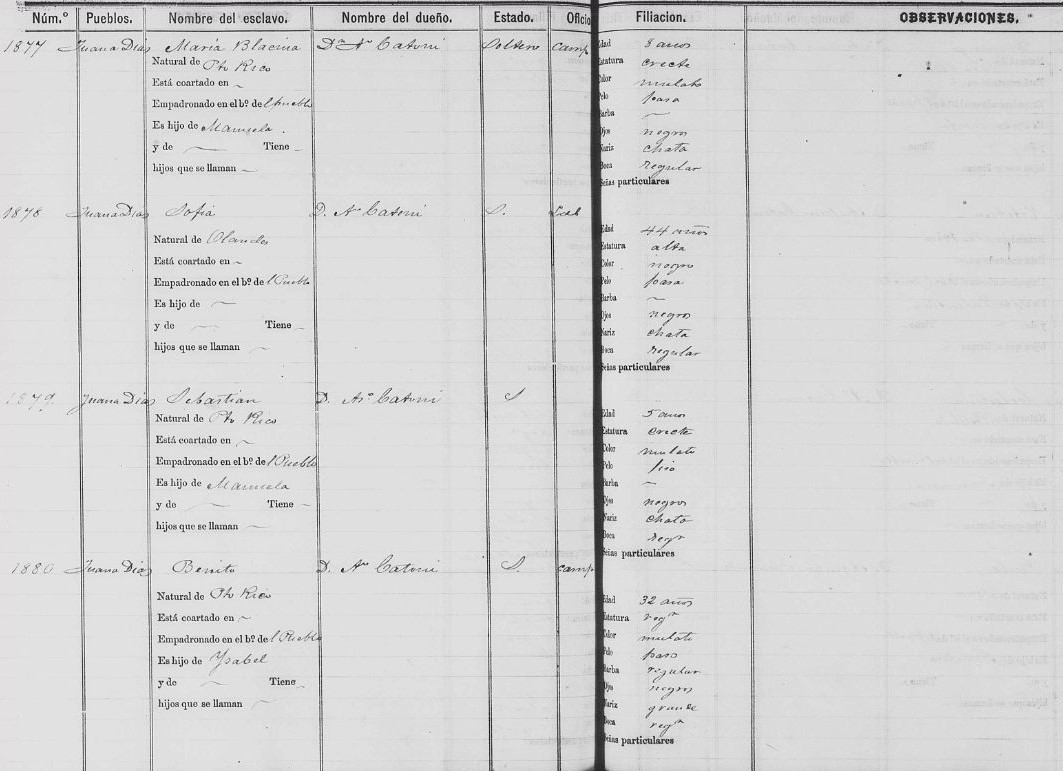 Núm.º Pueblos. Nombre del esclavo. Nombre del dueño. Estado. Oficio Filiacion. OBSERVACIONES.
1877 Juana Dias Maria Blacina Dn. Ao. Catoni Soltero Camp
Natural de Pto Rico
Está coartado en ~
Empadronado en el bº de l Pueblo
Es hijo de Manuela
y de ~ Tiene
hijos que se llaman ~
Edad 3 años
Estatura crecte
Color mulato
Pelo pasa
Barba ~
Ojos negros
Nariz chata
Boca regular
Señas particulares
1878 Juana Dias Sofia D. Ao. Catoni S.
Natural de Olanda
Está coartado en ~
Empadronado en el bº de l Pueblo
Es hijo de ~
y de ~ Tiene
hijos que se llaman ~
Edad 44 años
Estatura alta
Color negro
Pelo pasa
Barba ~
Ojos negros
Nariz chata
Boca regular
Señas particulares
1879 Juana Dias Sebastian D. Ao. Catoni S
Natural de Pto Rico
Está coartado en ~
Empadronado en el bº de l Pueblo
Es hijo de Manuela
y de ~ Tiene
hijos que se llaman ~
Edad 5 años
Estatura crecte
Color mulato
Pelo liso
Barba ~
Ojos negros
Nariz chata
Boca regr
Señas particulares
1880 Juana Dias Benito D. Ao. Catoni S. Camp
Natural de Pto Rico
Está coartado en ~
Empadronado en el bº de l Pueblo
Es hijo de Ysabel
y de ~ Tiene
hijos que se llaman ~
Edad 32 años
Estatura regr
Color mulato
Pelo pasa
Barba regular
Ojos negros
Nariz grande
Boca regr
Señas particulares